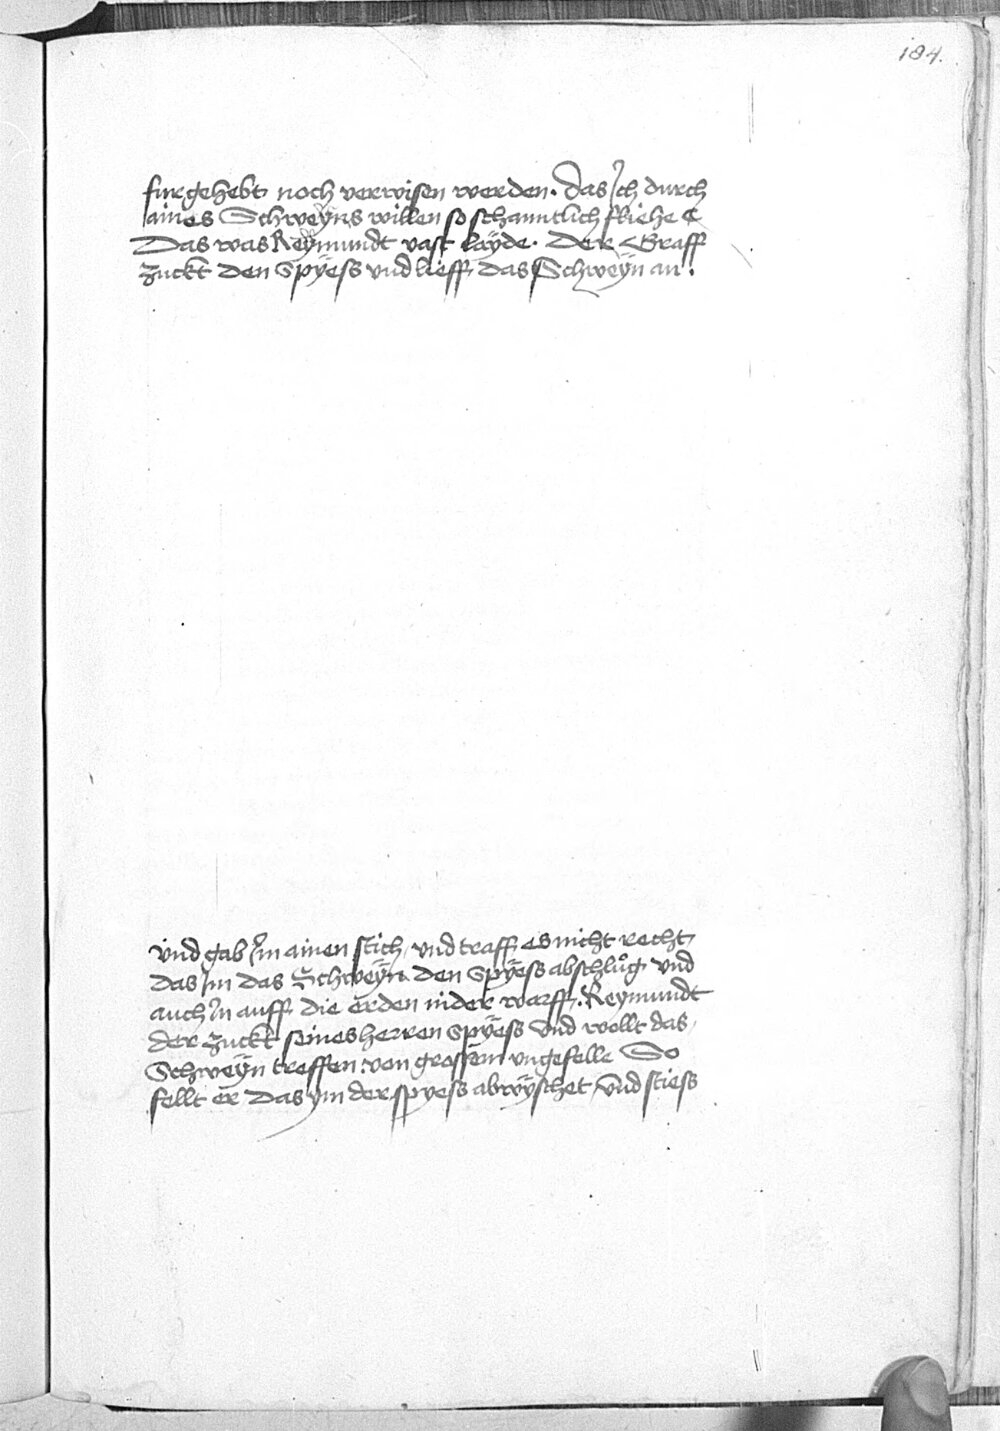 184.
furgehebt noch verwisen werden. das Ich durch
aines Schweÿns willen so schanntlich fliehe
Das was Reÿmundt vast laÿde. Der Graff
zuckt den Spÿess vnd lieff das Schweÿn an.
vnd gab Im ainen stich, vnd traff es nicht recht,
das Im das Schweÿn den Spÿess abschlůg vnd
auch In auff die erden nider warff. Reymundt
der zuckt seines herren Spÿess vnd wollt das
Schweÿn treffen: von grossem vngefelle So
fellt er das ym der spyess abwÿschet, vnd stiess